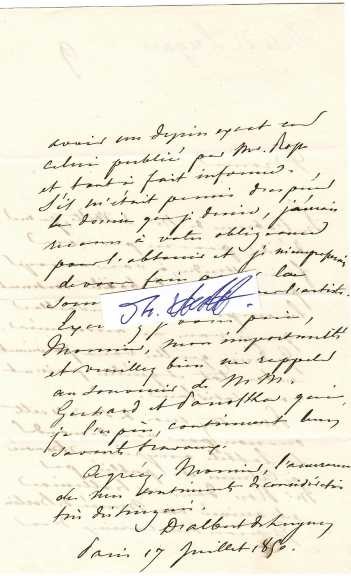 avoir un dessin exact car
celui publié par Mr. Rop
et tout à fait informe.
S'il m'était permis d'espérer
le dessin que je désire, j'aurais
recours à votre obligeance
pour l'obtenir et je
de vous faire la
l'artiste.
je vous prie,
Monsieur, mon importunité
et veuillez bien me rappeler
au souvenir de M.M.
Gerhard et Panofka qui,
je l'espère, continuent leurs
savants travaux.
Agréez, Monsieur, l'assurance
de mes sentiments de considération
très distinguée.
D'albert de Luynes
Paris 17 Juillet 1850.